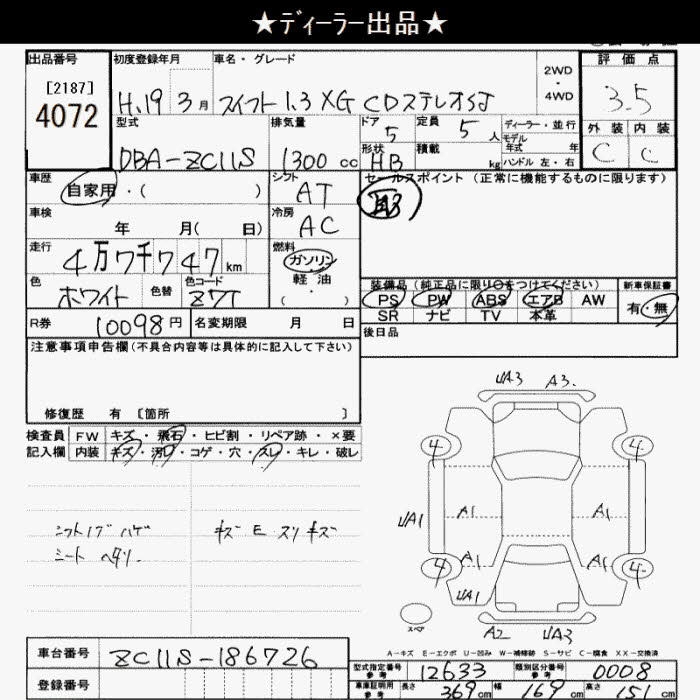 ★ディーラー出品★
出品番号 初度登録年月 車名・グレード 2WD・4WD 評価点
[2187]
4072 H.19 3月 スイフト 1.3 XG CDステレオSJ 3.5
型式 排気量 ドア 5 定員 5人 ディーラー・並行 外装 内装
モデル年式 年
DBA-ZC11S 1300cc 形状 HB 積載 kg ハンドル 左・右 C C
車歴 シフト セールスポイント (正常に機能するものに限ります)
自家用・( ) AT
車検 冷房
年 月( 日) AC
走行 燃料
4万7千747km ガソリン
軽油・
色 色替 色コード 装備品(純正品に限り○をつけてください) 新車保証書
ホワイト Z7T PS PW ABS エアB AW 有・無
SR ナビ TV 本革
R券 10098円 名変期限 月 日 後日品
注意事項申告欄(不具合内容等は具体的に記入して下さい)
修復歴 有 [箇所 ]
検査員 FW キズ・飛石・ヒビ割・リペア跡・×要
記入欄 内装 キズ・汚れ・コゲ・穴・スレ・キレ・破レ
UA3 A3.
4 4
UA1 A1 A1
シフトノブ ハゲ キズ E スリキズ
シート ヘタリ.
A1 A1
4 4
UA1
スペア
A2 UA3
A-キズ E-エクボ U-凹み W-補修跡 S-サビ C-腐食 XX-交換済
車台番号 ZC11S-186726
型式指定番号 参考 12633 類別区分番号 参考 0008
登録番号 車庫証明用 参考 長さ 369cm 幅 169cm 高さ 151cm